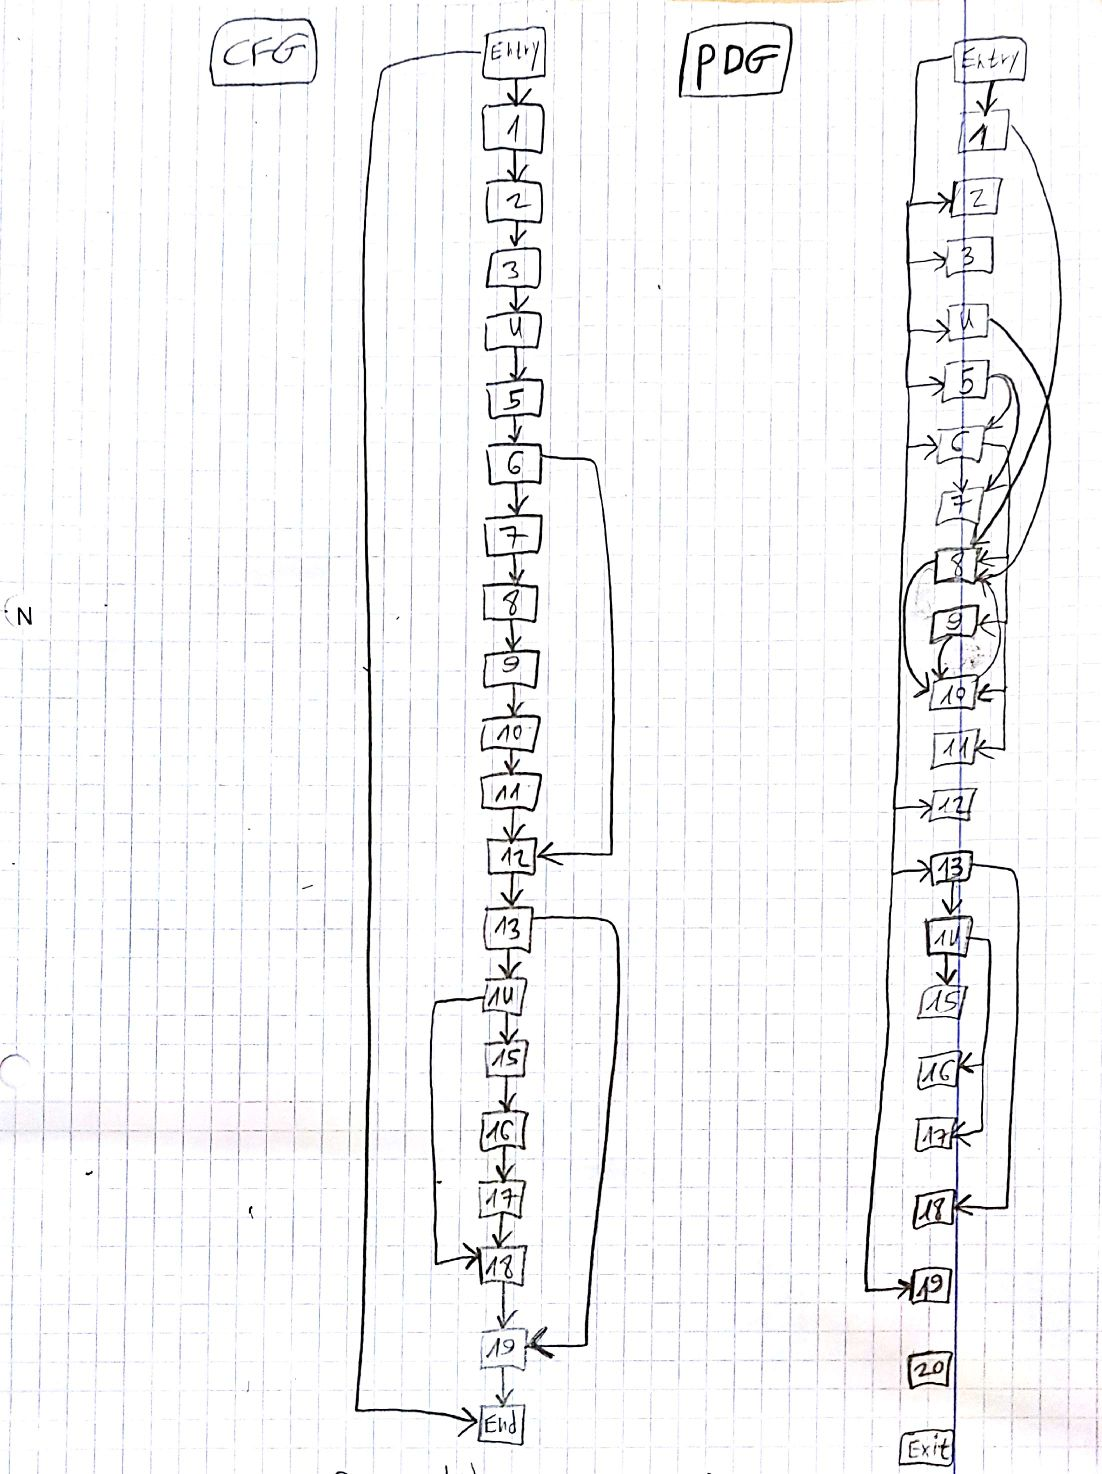 CFG
Entry
1
2
3
4
5
6
7
8
9
10
11
12
13
14
15
16
17
18
19
End
PDG
Entry
1
2
3
4
5
6
7
8
9
10
11
12
13
14
15
16
17
18
19
20
Exit
N